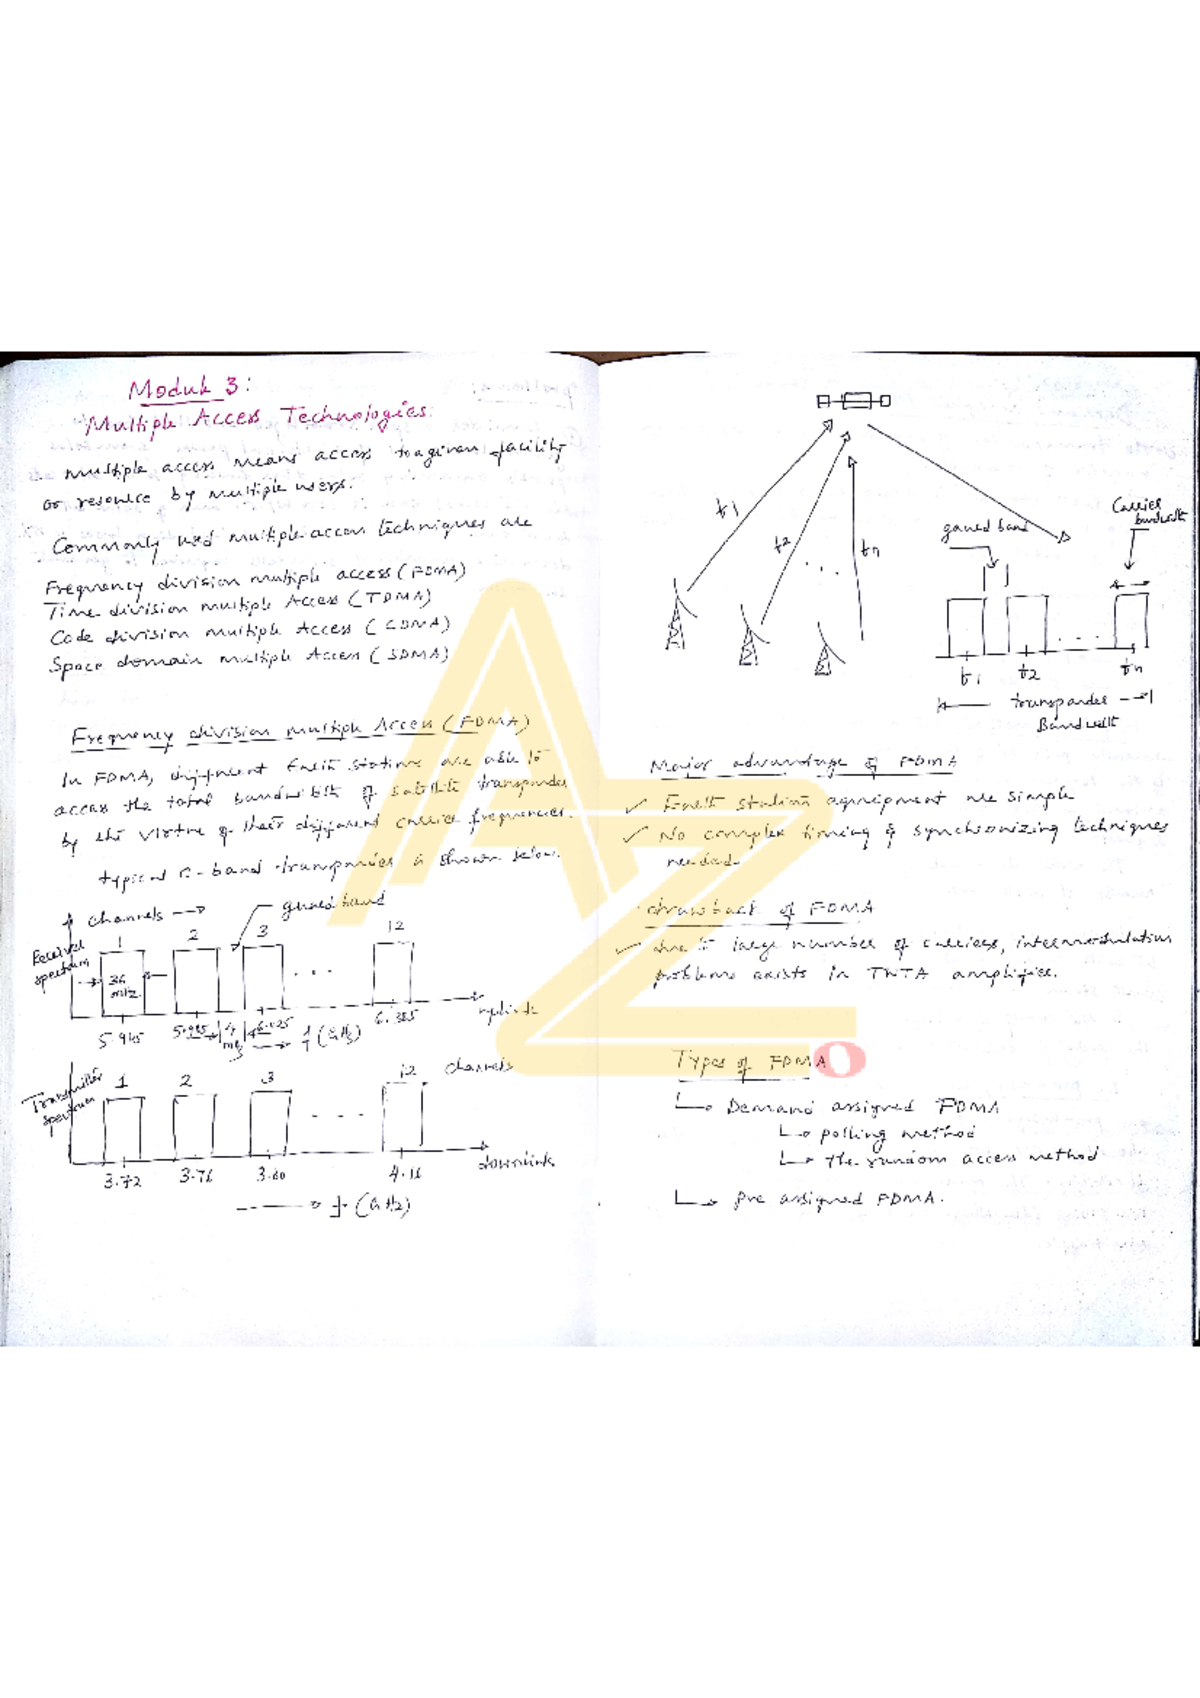 Module 3:
Multiple Access Technologies:
Multiple access means access to a given facility
or resource by multiple users.
Commonly used multiple access techniques are
Frequency division multiple access (FDMA)
Time division multiple Access (TDMA)
Code division multiple Access (CDMA)
Space domain multiple Access (SDMA)
Frequency division multiple Access (FDMA)
In FDMA, different Earth stations are able to
access the total bandwidth of satellite transponder
by the virtue of their different carrier frequencies.
typical C-band transponder is shown below.
channels
guard band
Receiver spectrum
1 2 3 12
36 MHz
5.945 4 MHz 6.025 6.385
f (GHz)
uplink
Transmitter spectrum
1 2 3 12 channels
3.72 3.76 3.80 4.16
downlink
f (GHz)
f1 f2 fn
guard band
Carrier bandwidth
f1 f2 fn
transponder Bandwidth
Major advantage of FDMA
✓ Earth station equipment are simple
✓ No complex timing & synchronizing techniques
needed.
drawback of FDMA
✓ due to large number of carriers, intermodulation
problems exists in TWTA amplifier.
Types of FDMA
Demand assigned FDMA
polling method
the random access method
pre assigned FDMA.
AZO